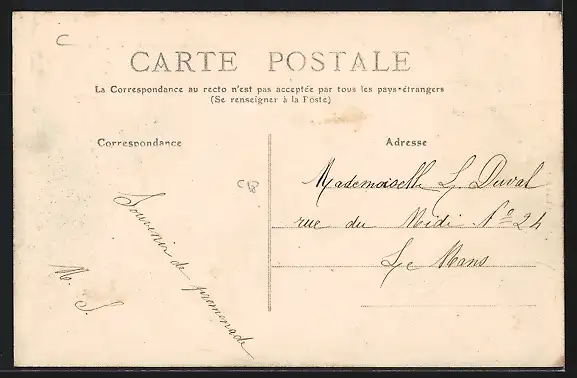 C
CARTE POSTALE
La Correspondance au recto n'est pas acceptée par tous les pays étrangers
(Se renseigner à la Poste)
Correspondance
Adresse
CB
Souvenir de promenade
M. S.
Mademoiselle L. Duval
rue du Midi Nº 24
Le Mans